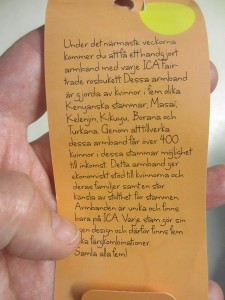 Under det närmaste veckorna
kommer du att få ett handgjort
armband med varje ICA Fair-
trade rosbukett Dessa armband
är gjorda av kvinnor i fem olika
Kenyanska stammar, Masai,
Kelenjin, Kikuyu, Borana och
Turkana. Genom att tillverka
dessa armband får över 400
kvinnor i dessa stammar möjlighet
till inkomst. Detta armband ger
ekonomiskt stöd till kvinnorna och
deras familjer samt en stor
känsla av stolthet för stammen.
Armbanden är unika och finns
bara på ICA. Varje stam gör sin
egen design och därför finns fem
olika färgkombinationer.
Samla alla fem!